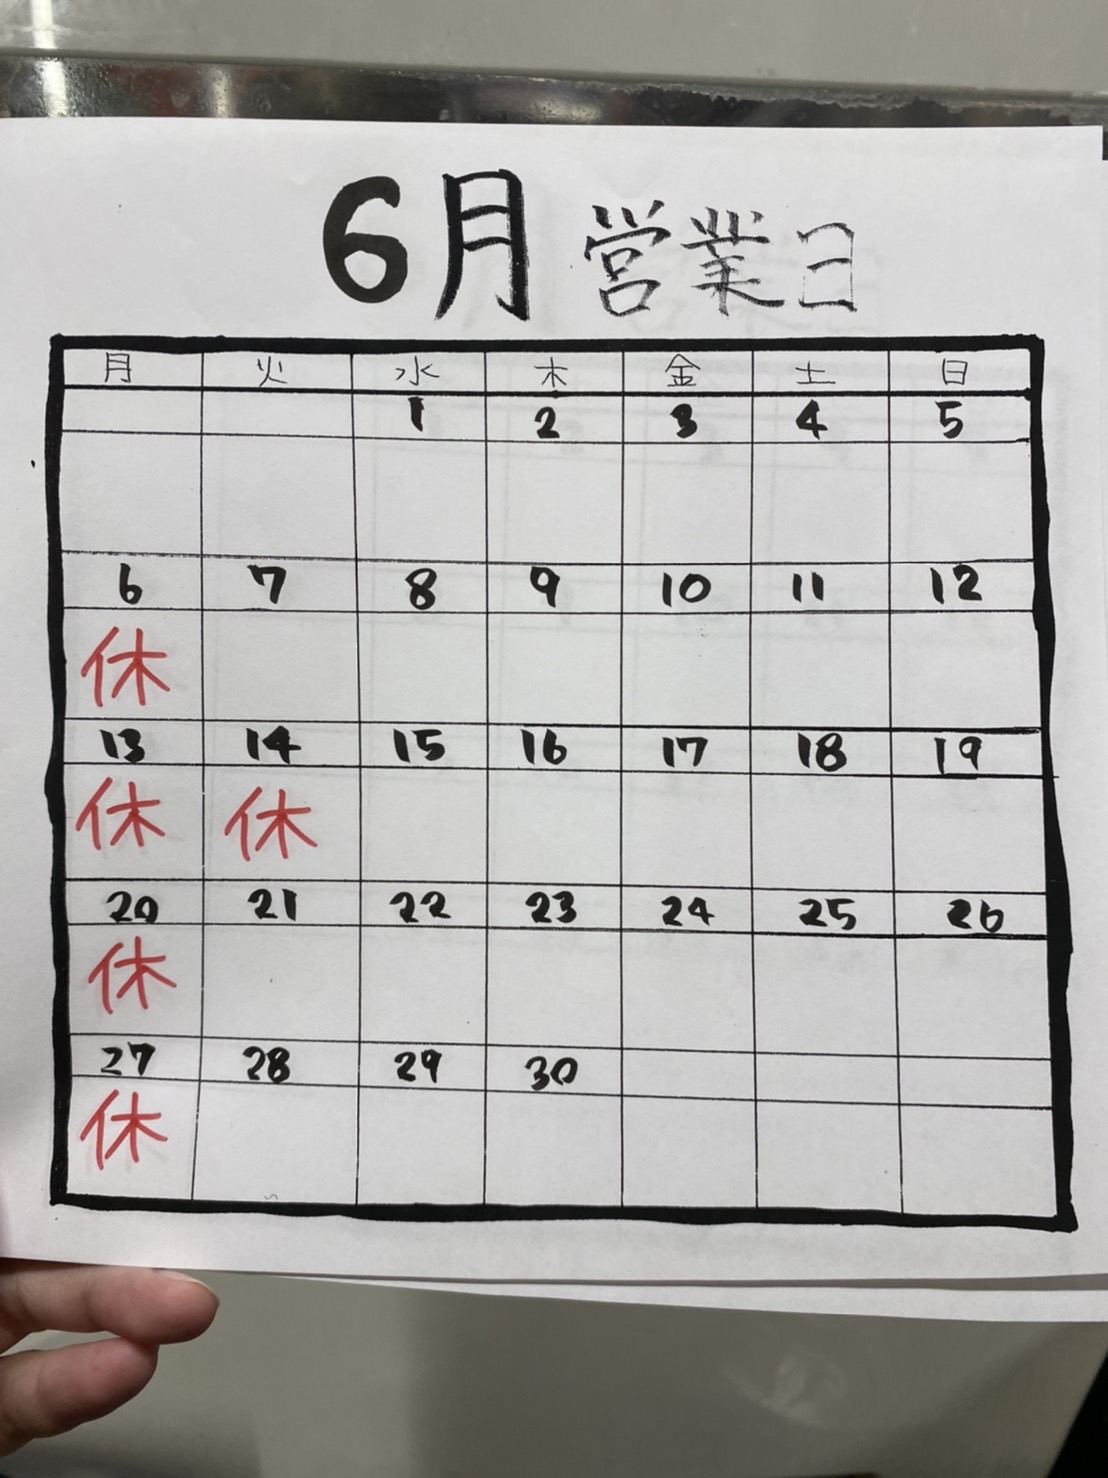 6月営業日
月 火 水 木 金 土 日
1 2 3 4 5
6 7 8 9 10 11 12
休
13 14 15 16 17 18 19
休 休
20 21 22 23 24 25 26
休
27 28 29 30
休